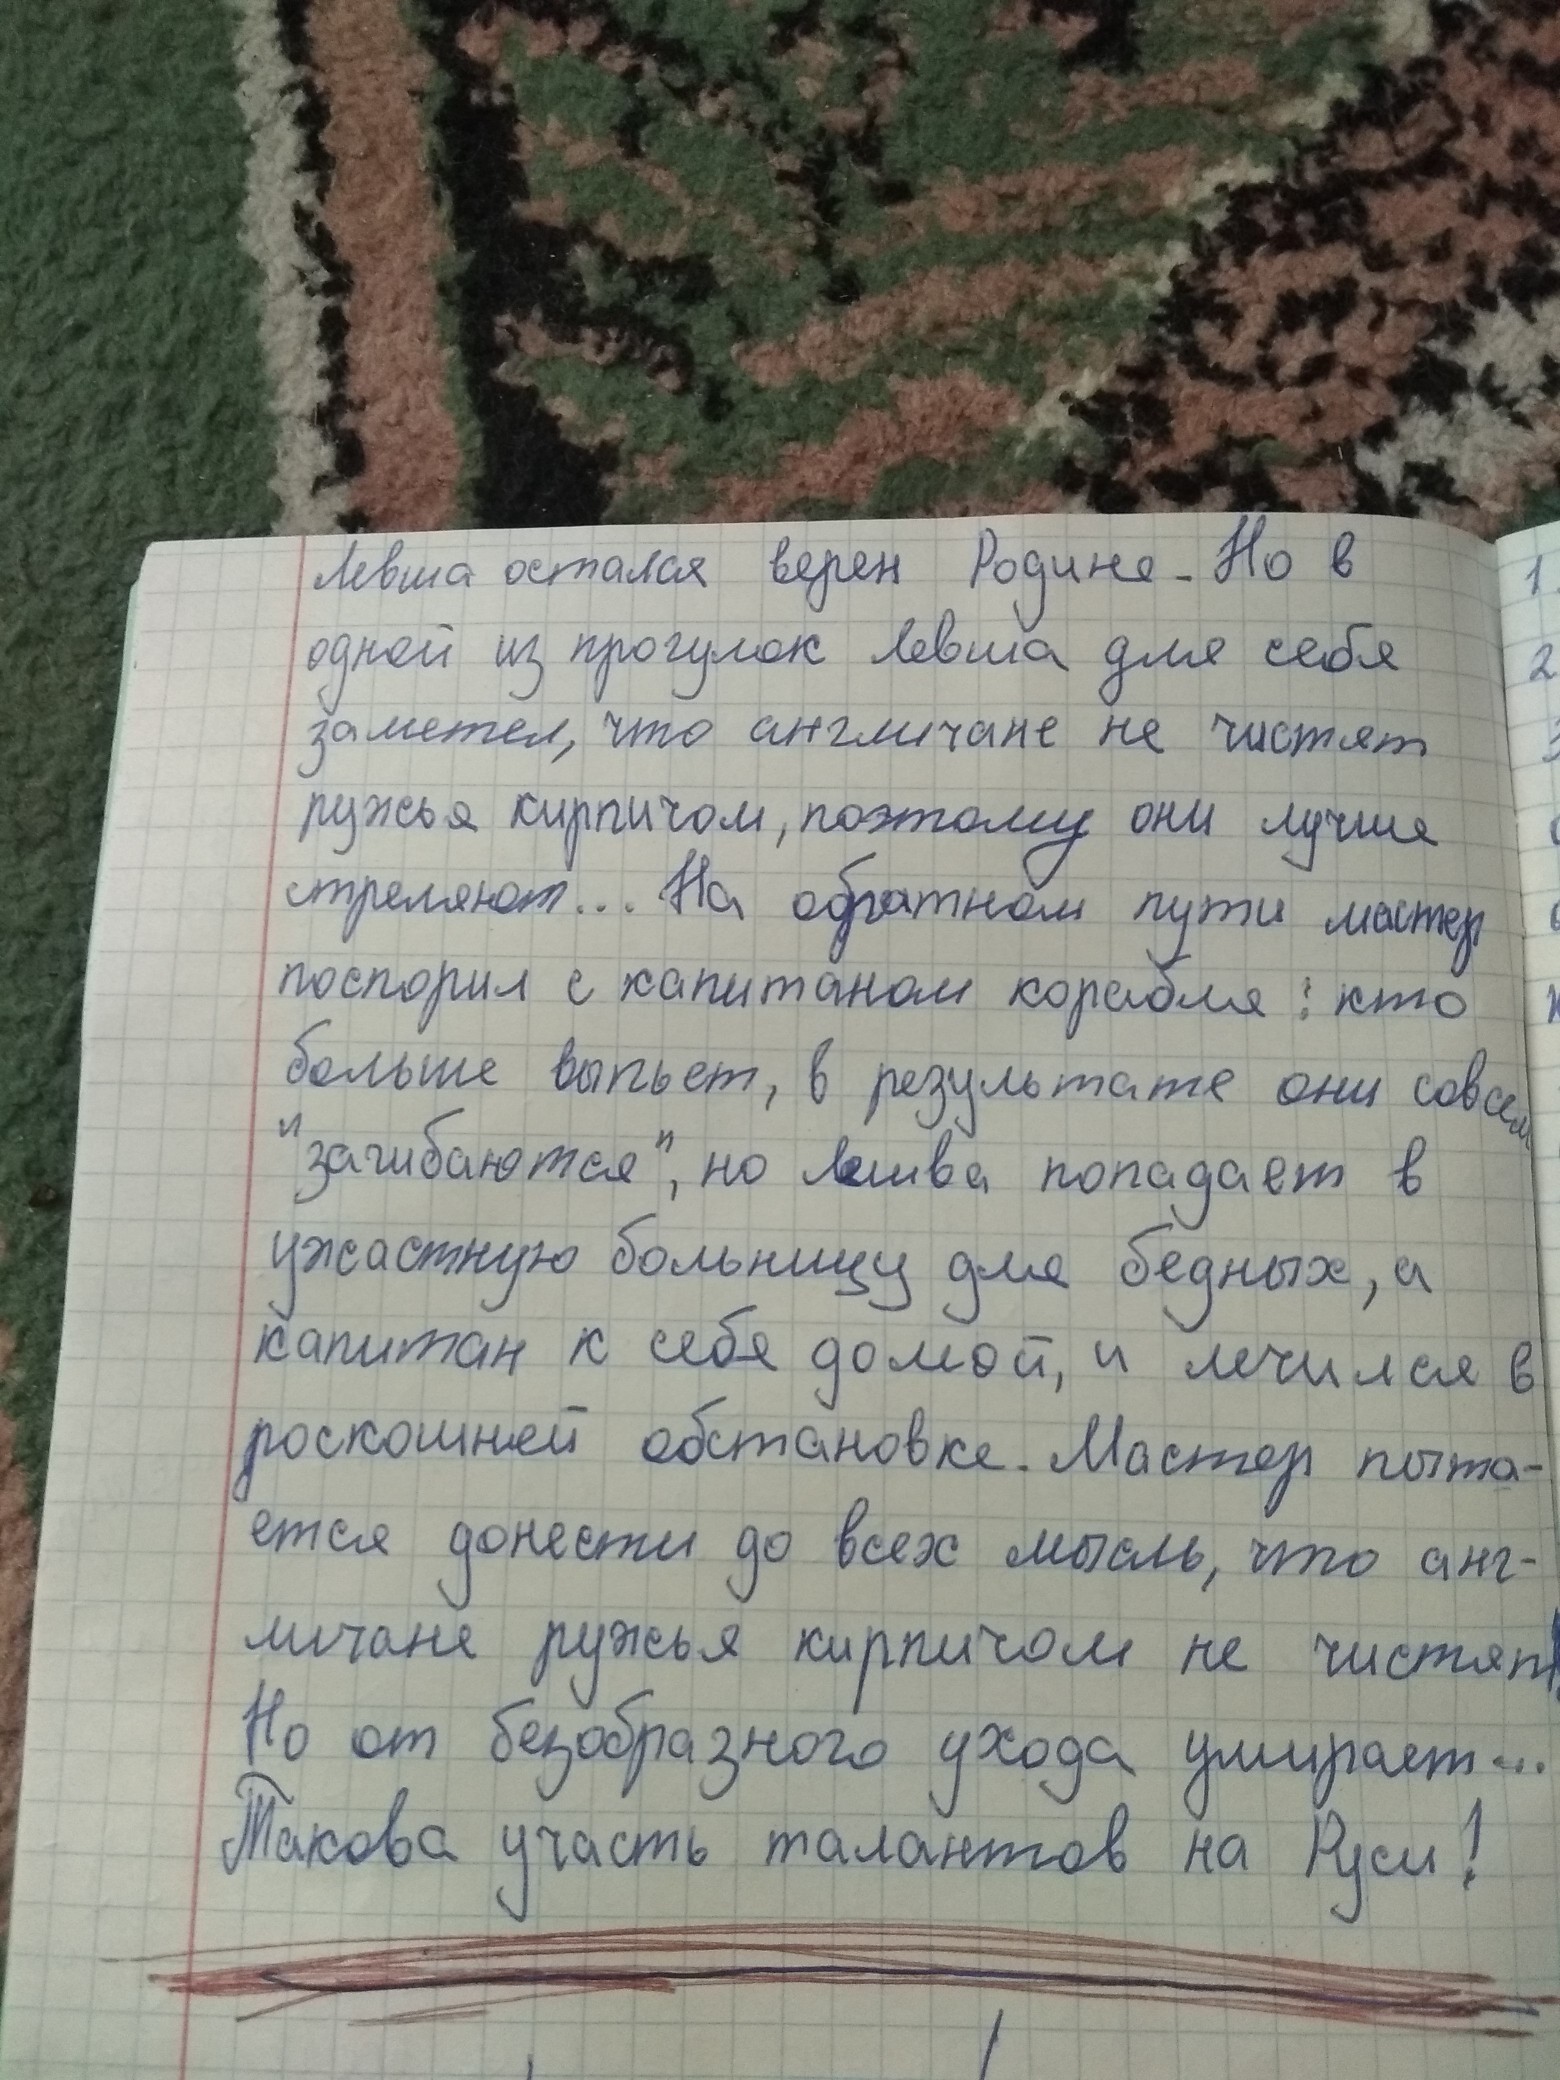 Левша остался верен Родине. Но в
одной из прогулок Левша для себя
заметел, что англичане не чистят
ружья кирпичом, поэтому они лучше
стреляют... На обратном пути мастер
поспорил с капитаном корабля: кто
больше выпьет, в результате они совсем
"загибаются", но Лешва попадает в
ужастную больницу для бедных, а
капитан к себе домой, и лечился в
роскошней обстановке. Мастер пыта-
ется донести до всех мысль, что анг-
личане ружья кирпичом не чистят!
Но от безобразного ухода умирает...
Такова участь талантов на Руси!
1.
2
3